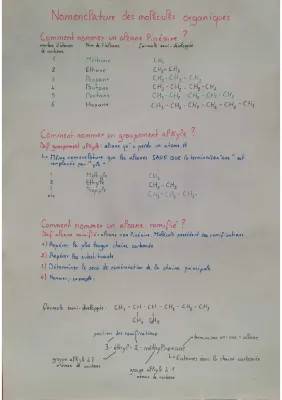 Nomenclature des molécules organiques
Comment nommer un alcane linéaire ?
nombre d'atomes de carbone Nom de l'alcane Formule semi-développée
1 Méthane CH4
2 Ethane CH3-CH3
3 Propane CH3-CH2-CH3
4 Butane CH3-CH2-CH2-CH3
5 Pentane CH3-CH2-CH2-CH2-CH3
6 Hexane CH3-CH2-CH2-CH2-CH2-CH3
Comment nommer un groupement alkyle ?
Def groupement alkyle: alcane qui a perdu un atome H
↳ Même nomenclature que les alcanes SAUF QUE la terminaison "ane" est
remplacée par "yle"
1 Méthyle CH3
2 Ethyle CH2-CH3
3 Propyle CH2-CH2-CH3
etc
Comment nommer un alcane ramifié ?
Def alcane ramifié: alcane non linéaire. Molécule possédant des ramifications
1) Repérer la plus longue chaîne carbonée
2) Repérer les substituants
3) Déterminer le sens de numérotation de la chaîne principale
4) Nommer,
Formule semi-développée: CH3-CH-CH-CH2-CH2-CH3
CH3 CH2
position des ramifications
terminaison en -ane = alcane
3-éthyl-2-méthylhexane
groupe alkyle à 2
atomes de carbone
groupe alkyle à 1
atome de carbone
6 atomes dans la chaîne carbonée